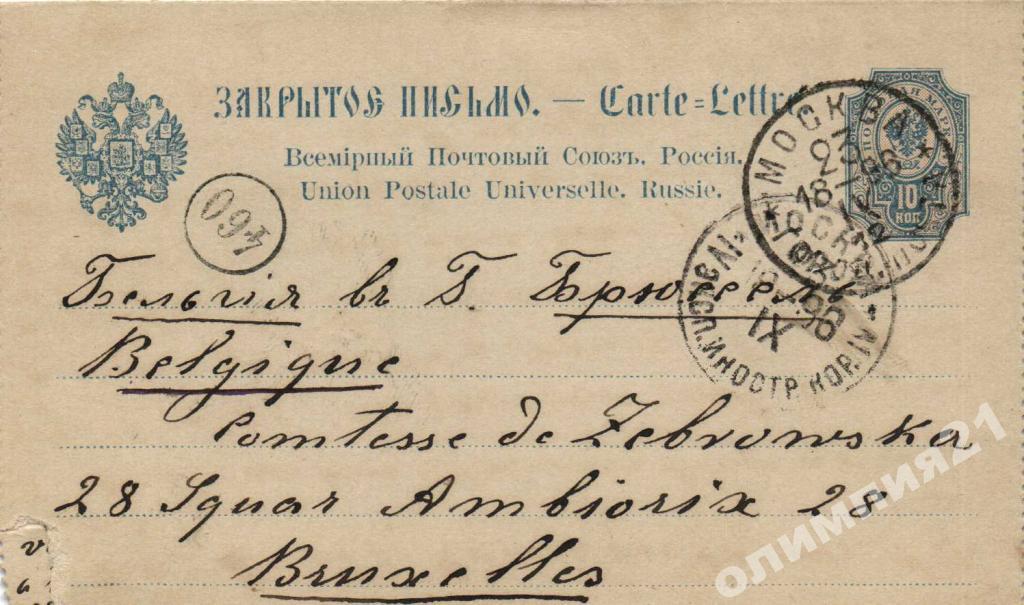 ЗАКРЫТОЕ ПИСЬМО. — Carte=Lettre
Всемірный Почтовый Союзъ. Россія.
Union Postale Universelle. Russie.
МОСКВА
10
КОП
460
18 IX 96
ИНОСТР. КОР. IV
Бельгія въ Г. Брюссель
Belgique
Comtesse de Zebrowska
28 Squar Ambiorix 28
Bruxelles
олимпия21